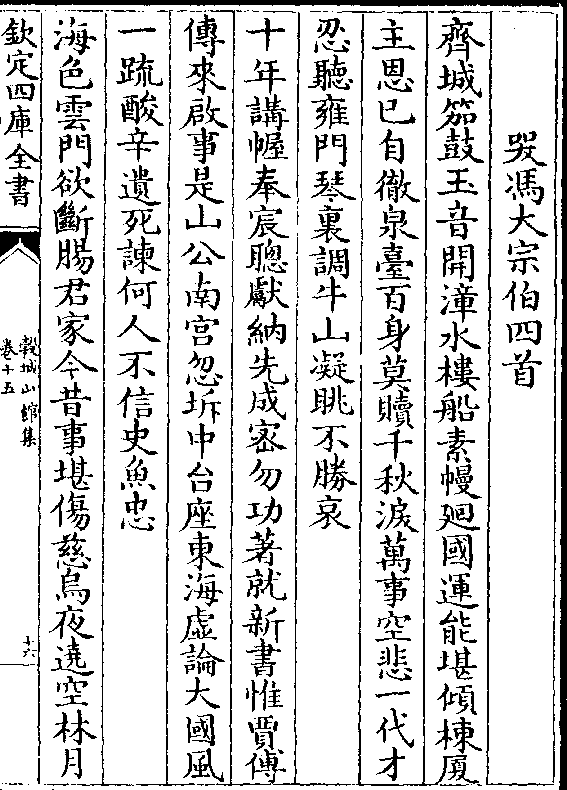 哭馮大宗伯四首
齊城笳鼓玉音開漳水樓船素幔廻國運能堪傾棟厦
主恩已自徹泉臺百身莫贖千秋淚萬事空悲一代才
忍聽雍門琴裏調牛山凝眺不勝哀
十年講幄奉宸聰獻納先成密勿功著就新書惟賈傅
傳來啟事是山公南宫忽坼中台座東海虚論大國風
一疏酸辛遺死諫何人不信史魚忠
海色雲門欲斷腸君家今昔事堪傷慈烏夜遶空林月
欽定四庫全書
榖城山館集
卷十五
十六